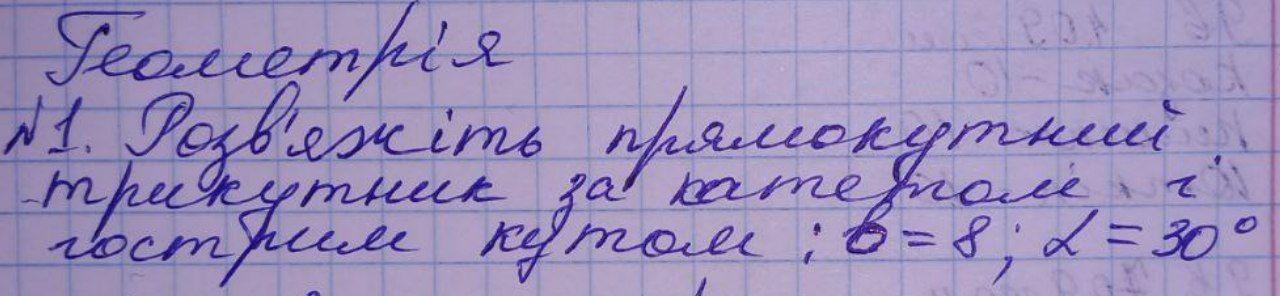 Геометрія
№1. Розв'яжіть прямокутний
трикутник за катетом і
гострим кутом: b=8; α=30°